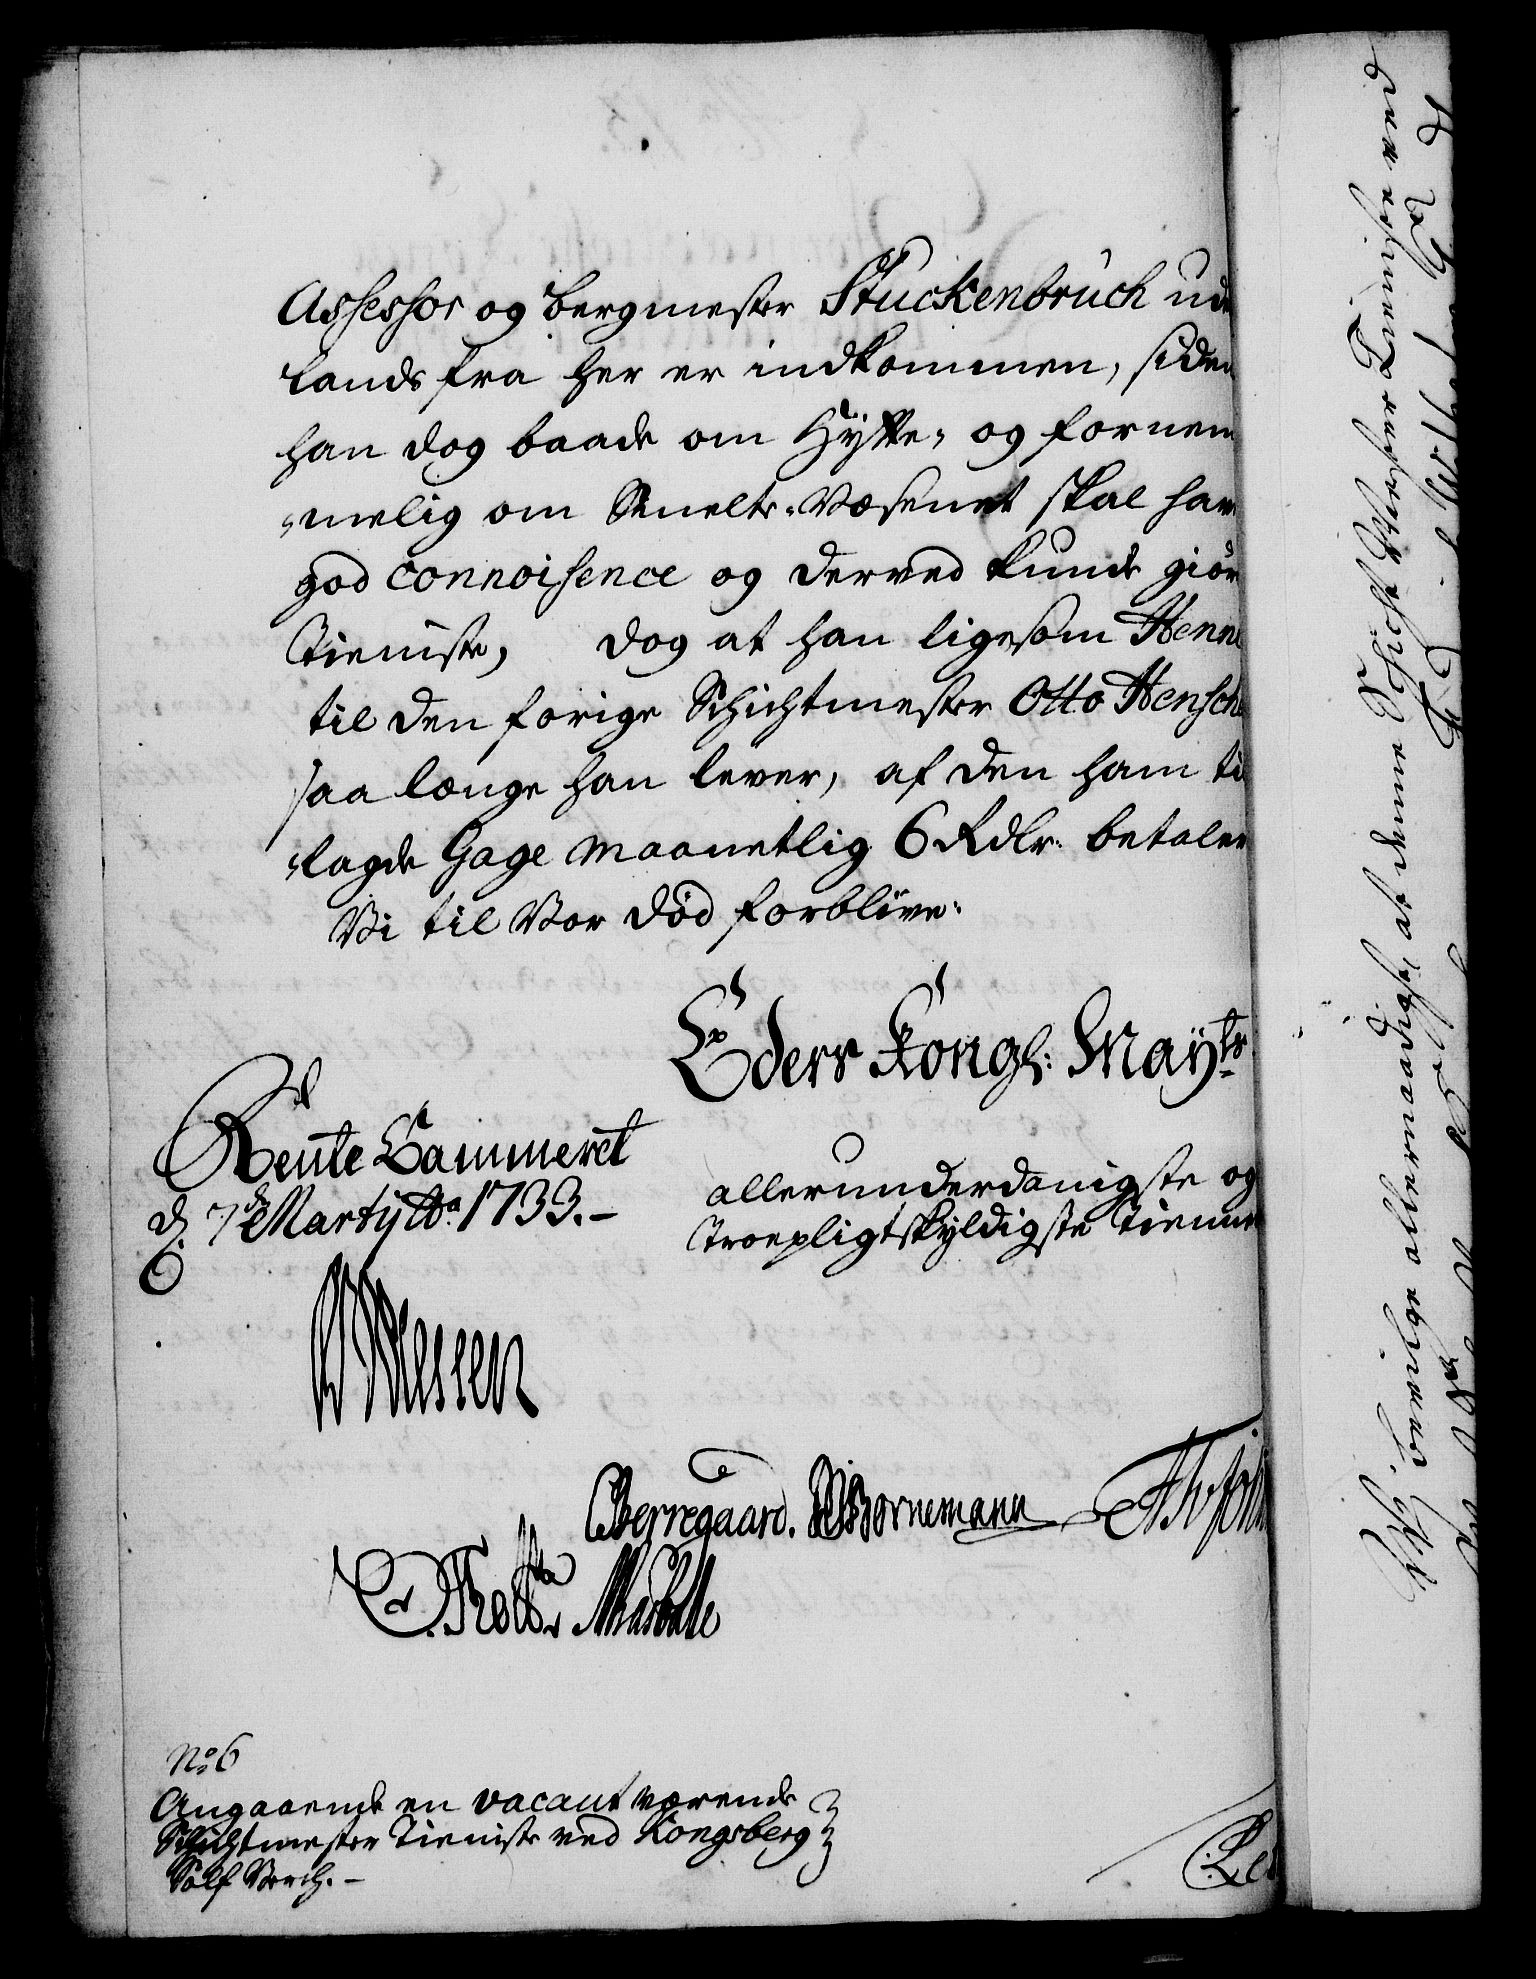 Assessor og Bergmester Stuckenbruch ude
lands fra her er indkommen, siden
han dog baade om Hytte- og fornem
-melig om Smelte-Væsenet skal have
god connoisence og derved kunde giør
Tieniste, dog at han ligesom Henne
til den forige Schichtmester Otto Hensch
saa længe han lever, af den ham til
-lagde Gage maanetlig 6 Rdlr. betaler
Vi til Vor død forblive.
Eders Kongl: Mayts
Rente Cammeret
d. 7de Martij Ao. 1733.-
allerunderdanigste og
Troepligtskyldigste Tienner
Wessen
CBerregaard. Bornemann
No: 6
Angaaende en vacant værende
Schichtmester Tieniste ved Kongsberg
Sølf Verch.-
Vi bevilge allernaadigst, at denne Schicht Mester Tieniste ved